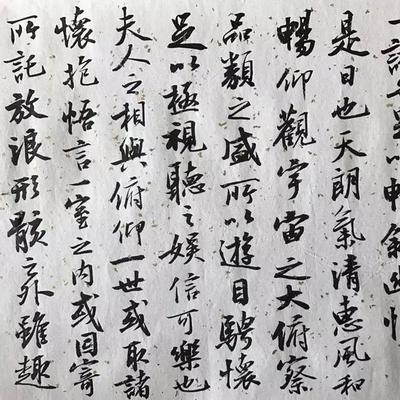 一詠亦足以暢敘幽情
是日也天朗氣清惠風和
暢仰觀宇宙之大俯察
品類之盛所以遊目騁懷
足以極視聽之娛信可樂也
夫人之相與俯仰一世或取諸
懷抱悟言一室之內或因寄
所託放浪形骸之外雖趣